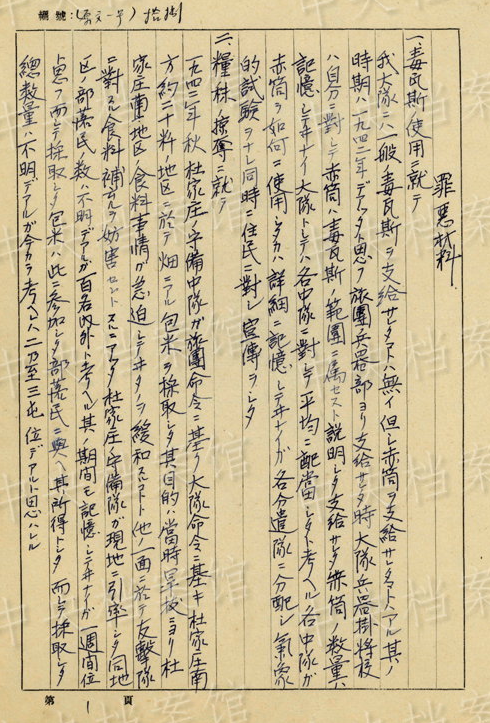 編號：
罪惡材料
一、毒瓦斯使用ニ就テ
我大隊ニハ一般毒瓦斯ヲ支給サレタコトハ無イ但シ赤筒ヲ支給サレタコトハアル其ノ
時期ハ一九四二年デアッタト思フ旅團兵器部ヨリ支給サレタ時大隊兵器掛將校
ハ自分ニ對シテ赤筒ハ毒瓦斯ノ範圍ニ属セスト説明シタ支給サレタ赤筒ノ数量ハ
記憶シテヰナイ大隊トシテハ各中隊ニ對シテ平均ニ配當シタト考ヘル各中隊ガ
赤筒ヲ如何ニ使用シタカハ詳細ニ記憶シテヰナイガ各分遣隊ニ分配シ氣象
的試験ヲナシ同時ニ住民ニ對シ宣傳ヲシタ
二、糧秣掠奪ニ就テ
一九四二年秋杜家庄ノ守備中隊ガ旅團命令ニ基ク大隊命令ニ基キ杜家庄南
方約二十粁ノ地区ニ於テ畑ニアル包米ヲ採取シタ其目的ハ當時旱抜ニヨリ杜
家庄南地区ノ食料事情ガ急迫シテヰタノヲ緩和スルト他ノ一面ニ於テ友撃隊
ニ對スル食料補給ヲ妨害セントスルニアッタ杜家庄守備隊ガ現地ニ引率シタ同地
区ノ部落民ノ数ハ不明デアルガ百名内外ト考ヘル其ノ期間モ記憶シテヰナイガ一週間位
ト思フ而シテ採取シタ包米ハ此ニ参加シタ部落民ニ與ヘ其所得トシタ而シテ採取シタ
總数量ハ不明デアルガ今カラ考ヘレハ二乃至三屯位デアルト思ハレル
第1頁
中央档案馆